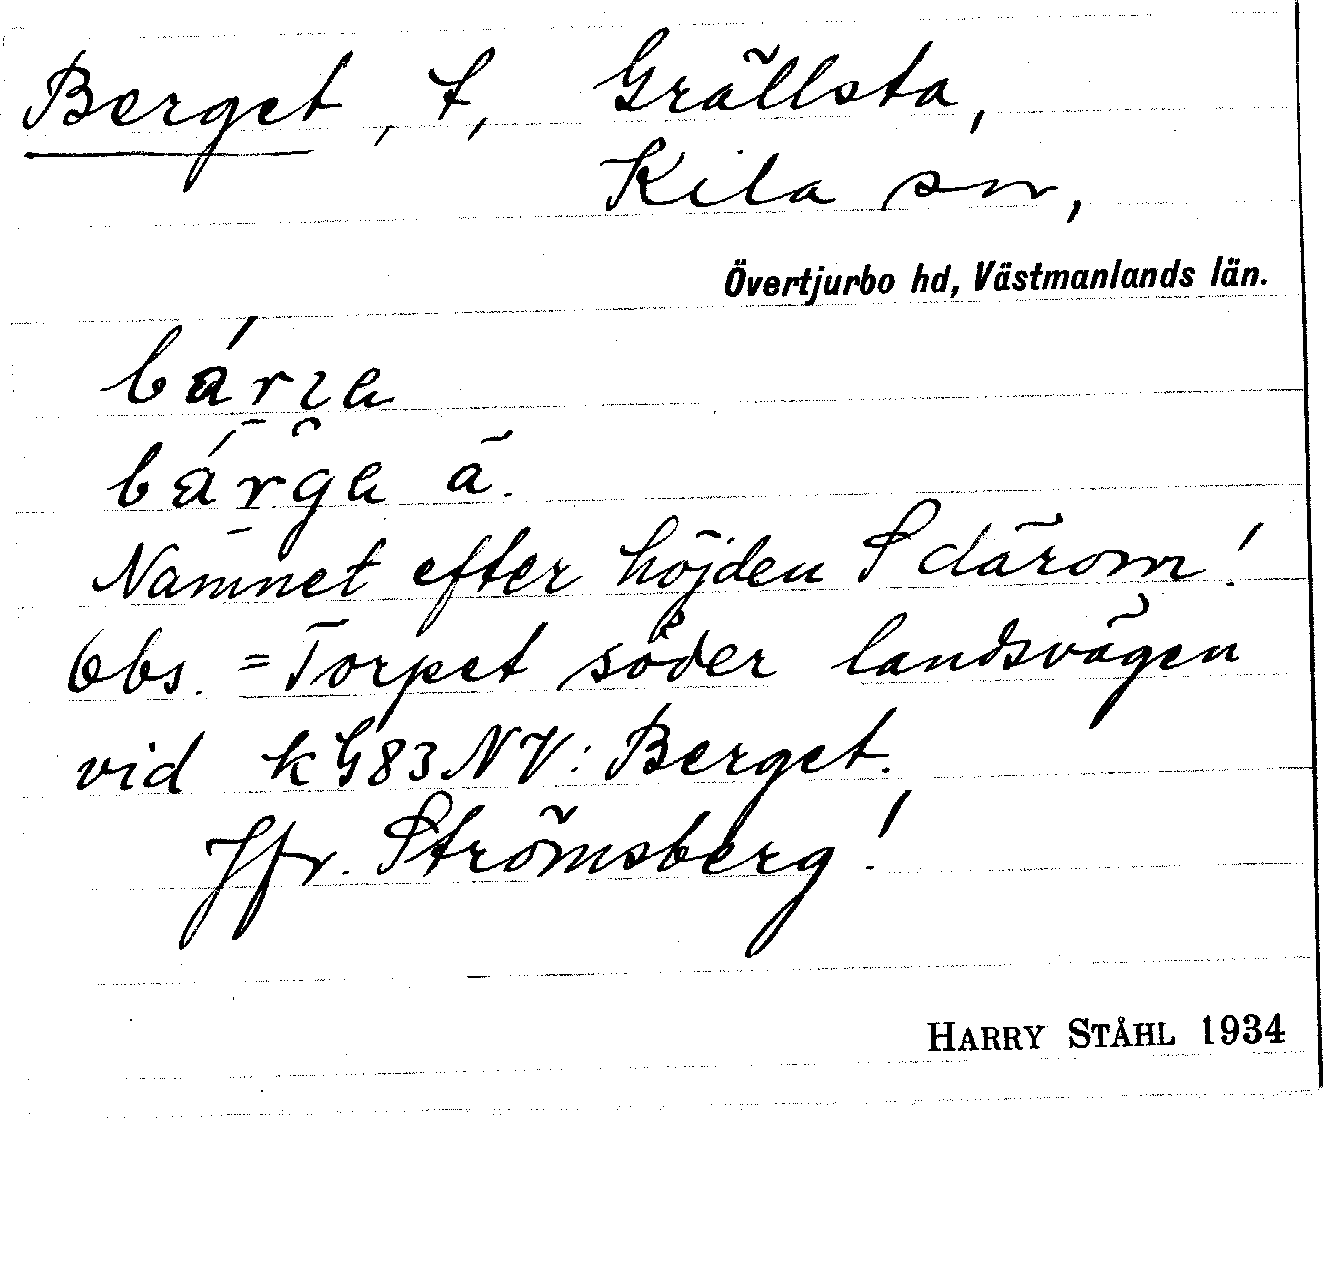 Berget, t, Grällsta,
Kila sn,
Övertjurbo hd, Västmanlands län.
Namnet efter höjden S därom!
Obs. = Torpet söder landsvägen
vid kG83NV: Berget.
Jfr. Strömsberg!
HARRY STÅHL 1934